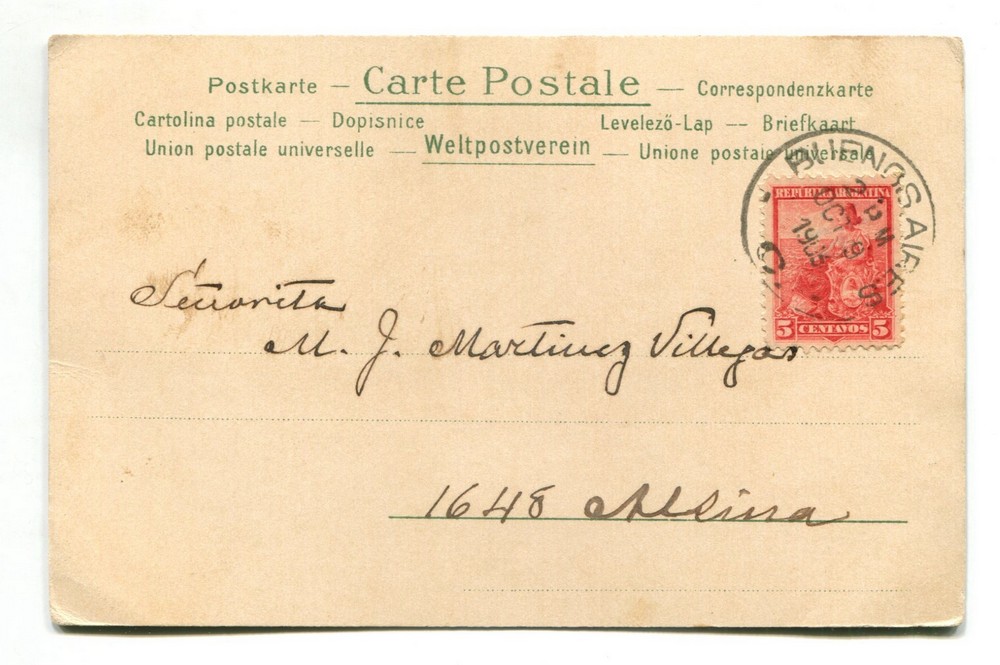 Postkarte — Carte Postale — Correspondenzkarte
Cartolina postale — Dopisnice Levelező-Lap — Briefkaart
Union postale universelle — Weltpostverein — Unione postale universale
BUENOS AIRES
2 PM
OCT 9
REPUBLICA ARGENTINA
5 CENTAVOS 5
Señorita
M. J. Martinez Villegas
1648 Alsina